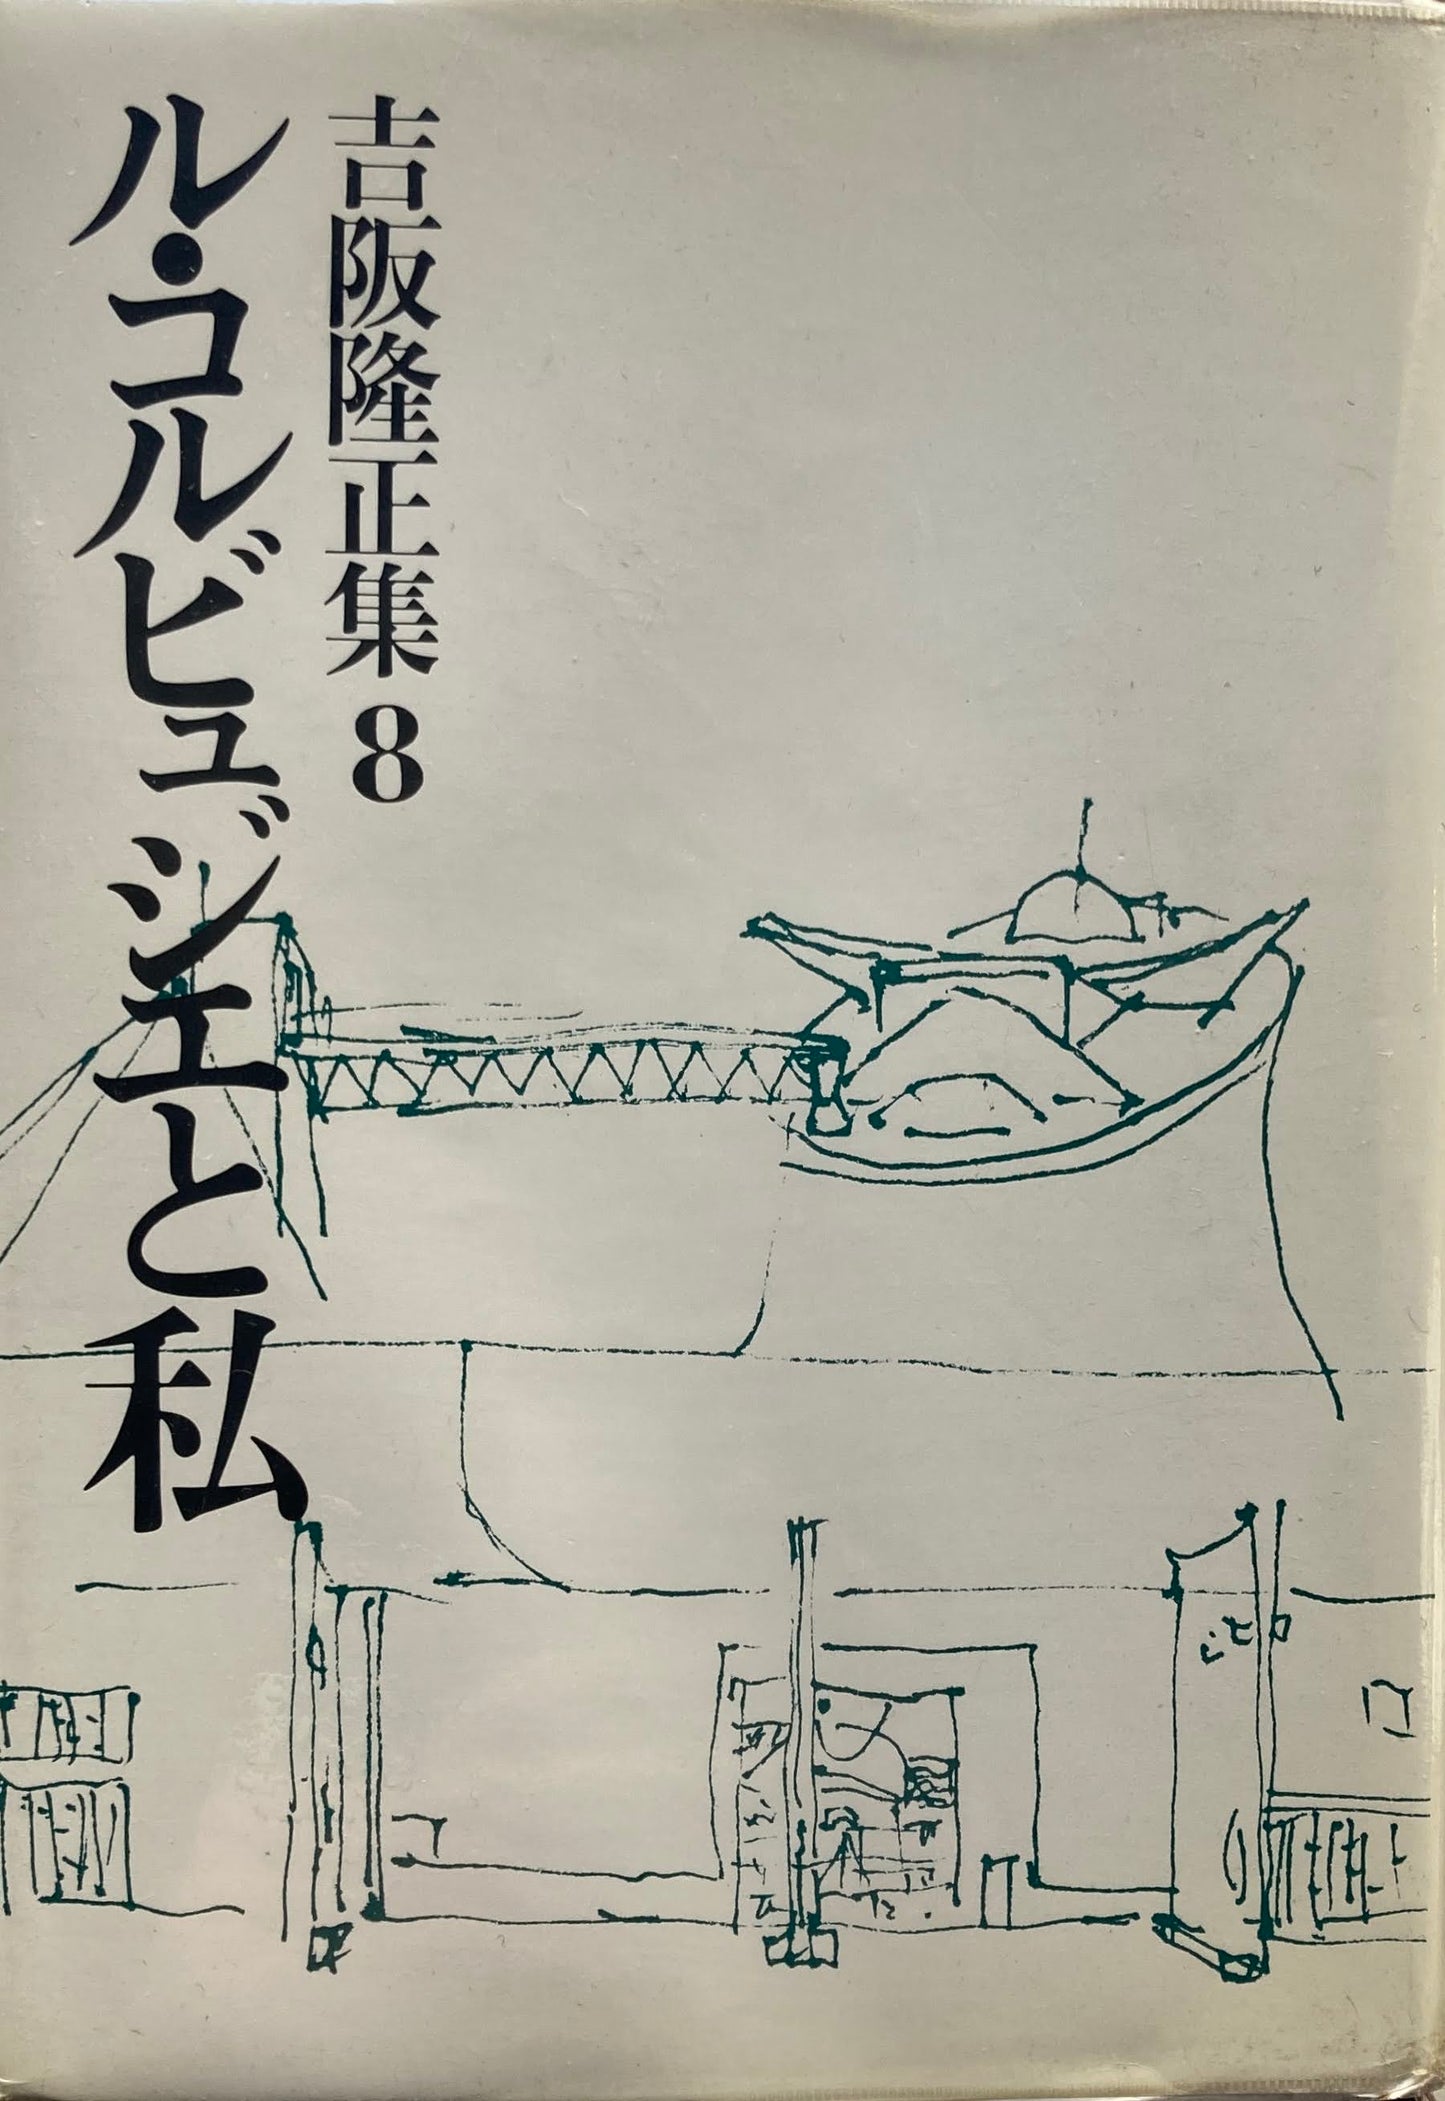 吉阪隆正集 8
ル・コルビュジエと私